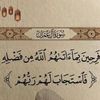 سورة آل عمران
فَرِحِينَ بِمَا ءَاتَىٰهُمُ ٱللَّهُ مِن فَضْلِهِ
فَٱسْتَجَابَ لَهُمْ رَبُّهُمْ